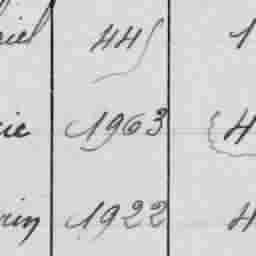 iel 44 1
cie 1963 4
rin 1922 4